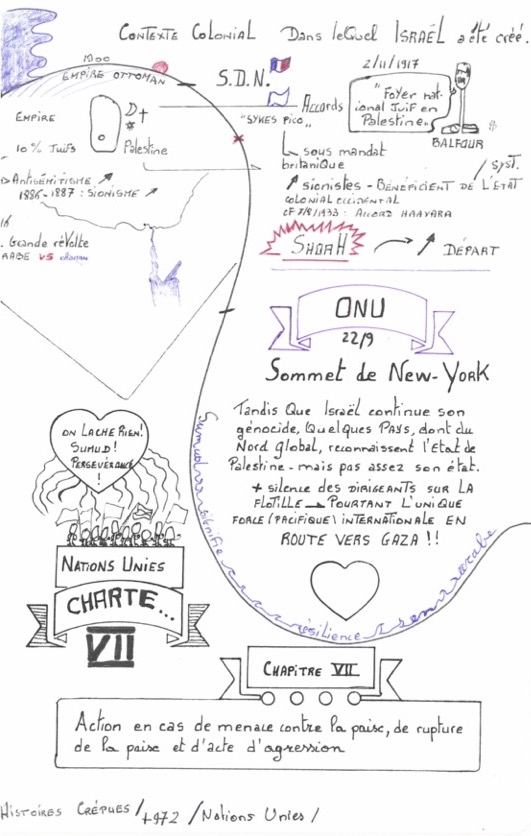 CONTEXTE COLONIAL Dans leQuel ISRAËL a été créé.
EMPIRE OTTOMAN
S.D.N.
2/11/1917
"Foyer nat-
ional Juif en
Palestine"
BALFOUR
Accords
"SYKES PICO"
EMPIRE
10% Juifs
Palestine
sous mandat
britaniQue
Antisémitisme
1886-1887 : SIONISME
/ SYST.
sionistes - BÉNÉFICIENT DE L'ETAT
COLONIAL OCCIDENTAL
CF 7/8/1933 : ACCORD HAAVARA
Grande réVolte
RABE VS ottoman
SHOAH
DÉPART
ONU
22/9
Sommet de New-York
Tandis Que Israël continue son
génocide, Quelques Pays, dont du
Nord Global, reconnaissent l'Etat de
Palestine - mais pas assez son état.
+ silence des DIRIGEANTS SUR LA
FLOTILLE POURTANT L'UNIQUE
FORCE (PACIFIQUE) INTERNATIONALE EN
ROUTE VERS GAZA !!
ON LACHE RIEN!
SUMUD!
PERSEVÉRANCE
!
NATIONS UNIES
CHARTE...
VII
Sumud signifie résilience en arabe
CHAPITRE VII
Action en cas de menace contre la paise, de rupture
de la paise et d'acte d'agression
HISTOIRES CRÉPUES / +972 / Nations Unies /